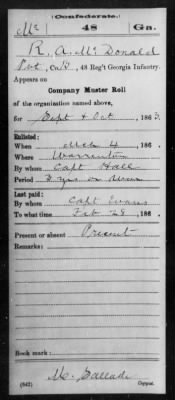 (Confederate.)
Mc 48 Ga.
R. A. McDonald
Pvt, Co. , 48 Reg't Georgia Infantry.
Appears on
Company Muster Roll
of the organization named above,
for Sept & Oct , 186 3.
Enlisted:
When Mch 4 , 186 .
Where Warrenton
By whom Capt Hall
Period 3 yrs or War
Last paid:
By whom Capt Evans
To what time Feb 28 , 186 .
Present or absent Present
Remarks:
Book mark:
(642) Copyist.